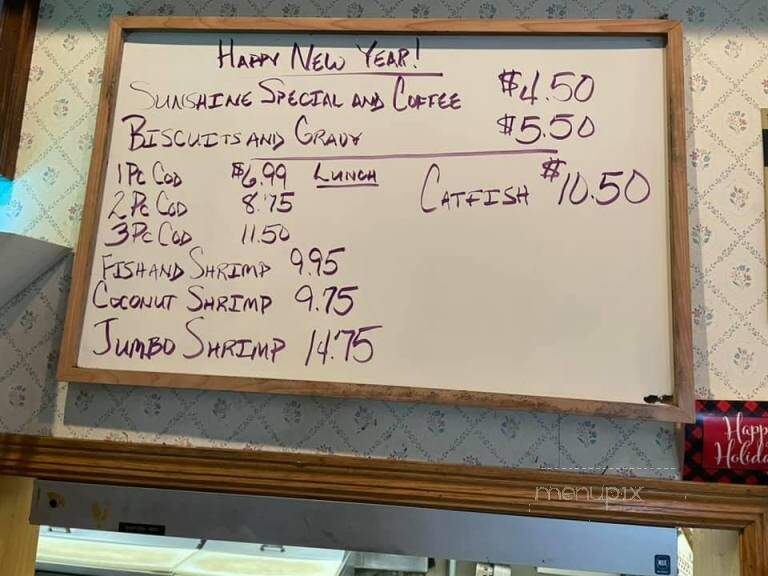 Happy New Year!
Sunshine Special and Coffee $4.50
Biscuits and Gravy $5.50
1 Pc Cod $6.99 Lunch
Catfish $10.50
2 Pc Cod 8.75
3 Pc Cod 11.50
Fish and Shrimp 9.95
Coconut Shrimp 9.75
Jumbo Shrimp 14.75
Happ
Holida
menupix